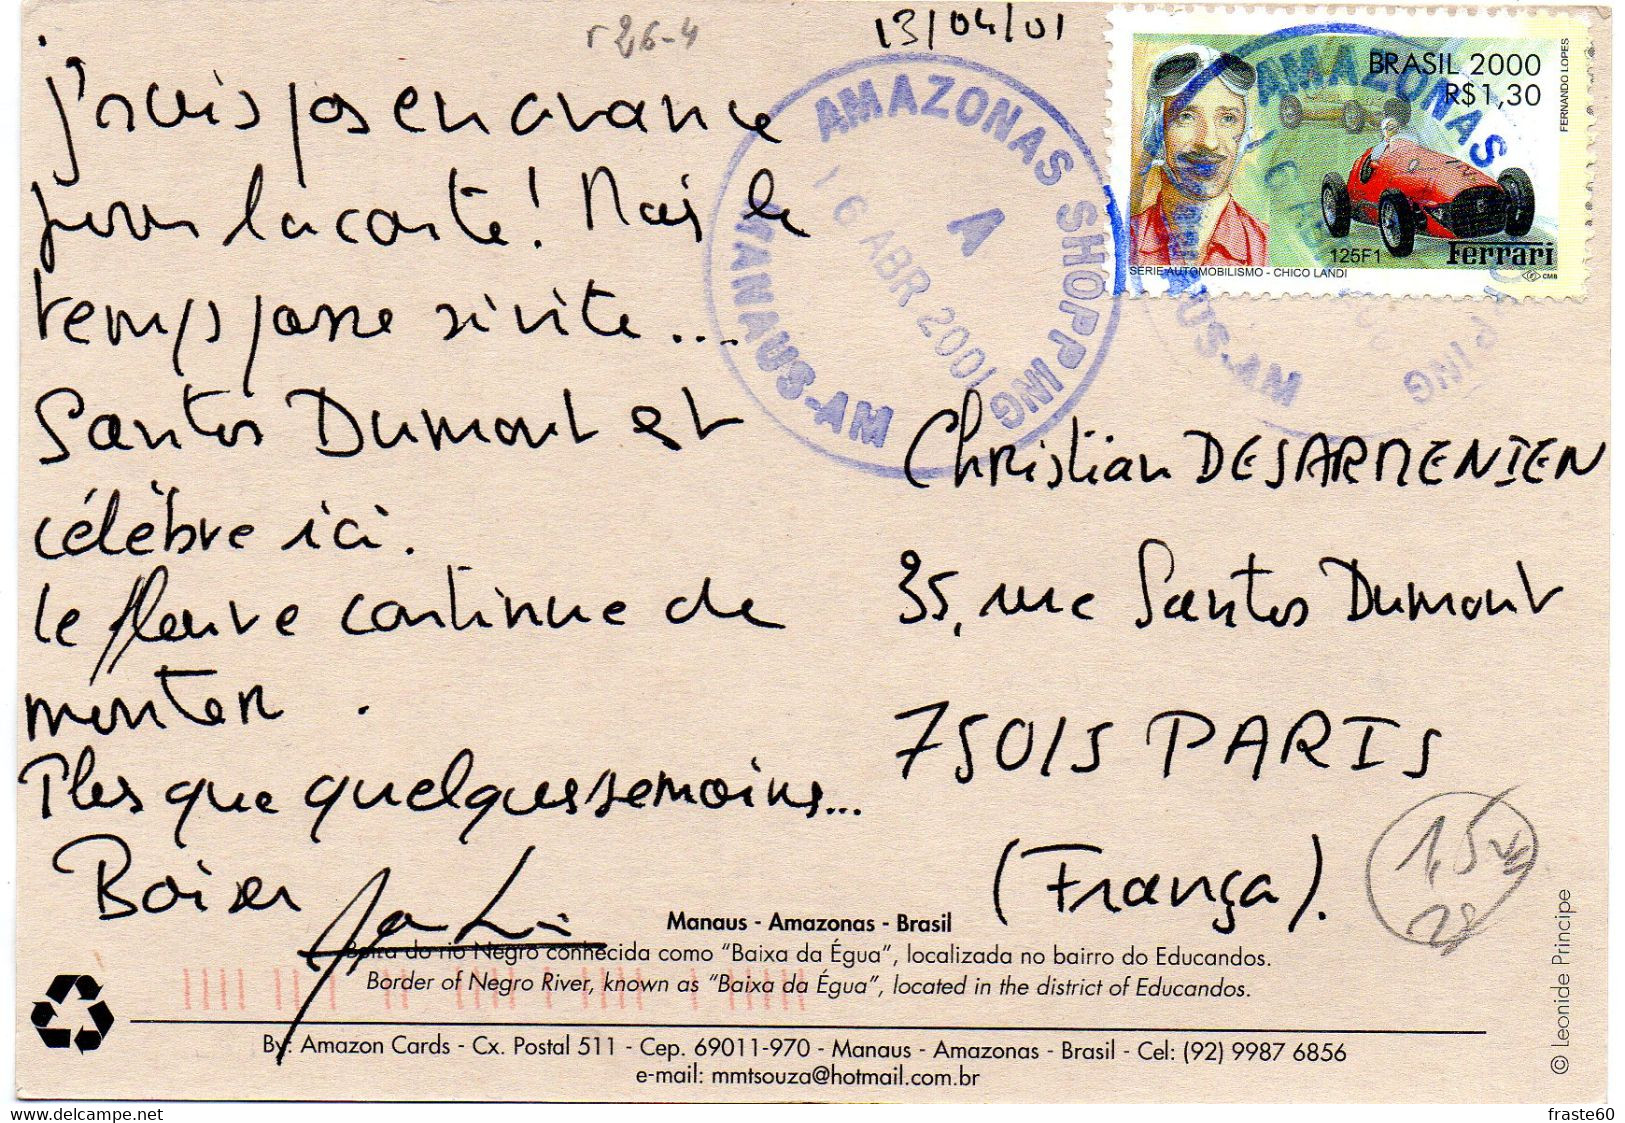 r 26-4
13/04/01
j'suis pas en avance
pour la carte! Mais le
temps passe si vite...
Santos Dumont est
célèbre ici.
le fleuve continue de
monter.
Plus que quelques semaines...
AMAZONAS SHOPPING
A
16 ABR 2001
MANAUS-AM
BRASIL 2000
R$1,30
FERNANDO LOPES
125F1
Ferrari
SÉRIE AUTOMOBILISMO - CHICO LANDI
CMB
AMAZONAS SHOPPING
MANAUS-AM
Christian DESARMENIEN
35, rue Santos Dumont
75015 PARIS
(França).
1,5
28
Manaus - Amazonas - Brasil
do rio Negro conhecida como "Baixa da Égua", localizada no bairro do Educandos.
Border of Negro River, known as "Baixa da Égua", located in the district of Educandos.
By: Amazon Cards - Cx. Postal 511 - Cep. 69011-970 - Manaus - Amazonas - Brasil - Cel: (92) 9987 6856
e-mail: mmtsouza@hotmail.com.br
© Leonide Principe
www.delcampe.net
fraste60